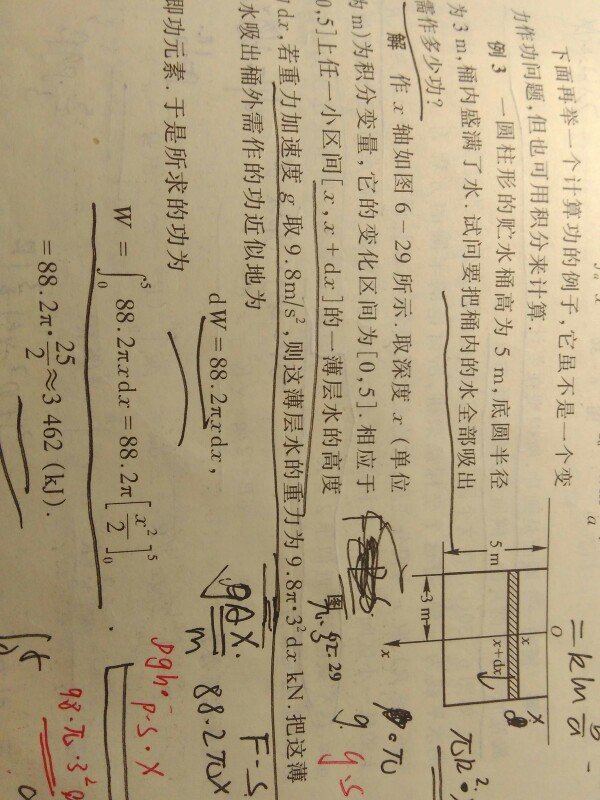 下面再举一个计算功的例子,它虽不是一个变
力作功问题,但也可用积分来计算.
例3 一圆柱形的贮水桶高为5 m,底圆半径
为3 m,桶内盛满了水.试问要把桶内的水全部吸出
需作多少功?
解 作x轴如图6-29所示.取深度x(单位
为m)为积分变量,它的变化区间为[0,5].相应于
[0,5]上任一小区间[x,x+dx]的一薄层水的高度
dx,若重力加速度g取9.8m/s²,则这薄层水的重力为9.8π·3²dx kN.把这薄
水吸出桶外需作的功近似地为
dW=88.2πxdx,
即功元素.于是所求的功为
W=∫₀⁵88.2πxdx=88.2π[x²/2]₀⁵
=88.2π·25/2≈3 462 (kJ).
O
5 m
3 m
x
x+dx
x
图 6-29
F-S
88.2πx
m
p·s·x
98·π·3²
g
g.s